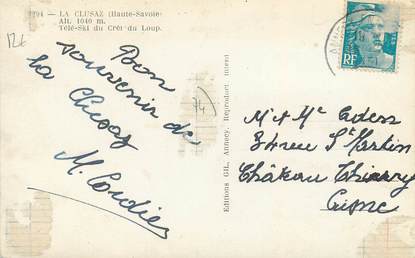 LA CLUSAZ (Haute-Savoie)
Alt. 1040 m.
Télé-Ski du Crêt du Loup.
126
74
Bon
souvenir de
La Clusaz
M. Cordier
Editions GIL, Annecy, Reproduct interd
RF
M et Mme
34 rue St Martin
Château Thierry
Aisne